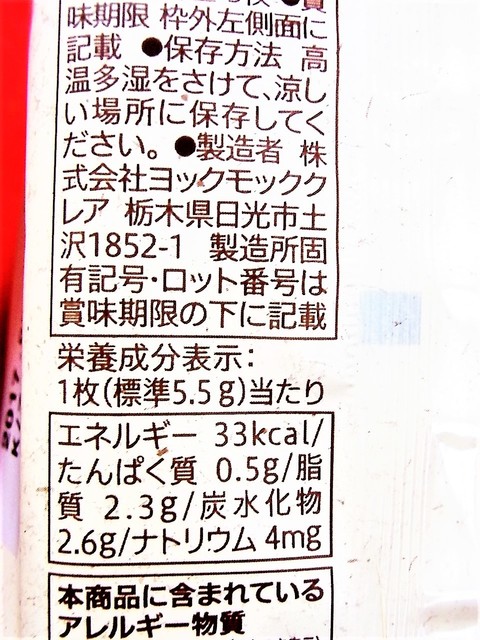 味期限 枠外左側面に
記載 ●保存方法 高
温多湿をさけて、涼し
い場所に保存してく
ださい。●製造者 株
式会社ヨックモックク
レア 栃木県日光市土
沢1852-1 製造所固
有記号・ロット番号は
賞味期限の下に記載
栄養成分表示:
1枚(標準5.5g)当たり
エネルギー 33kcal/
たんぱく質 0.5g/脂
質 2.3g/炭水化物
2.6g/ナトリウム 4mg
本商品に含まれている
アレルギー物質